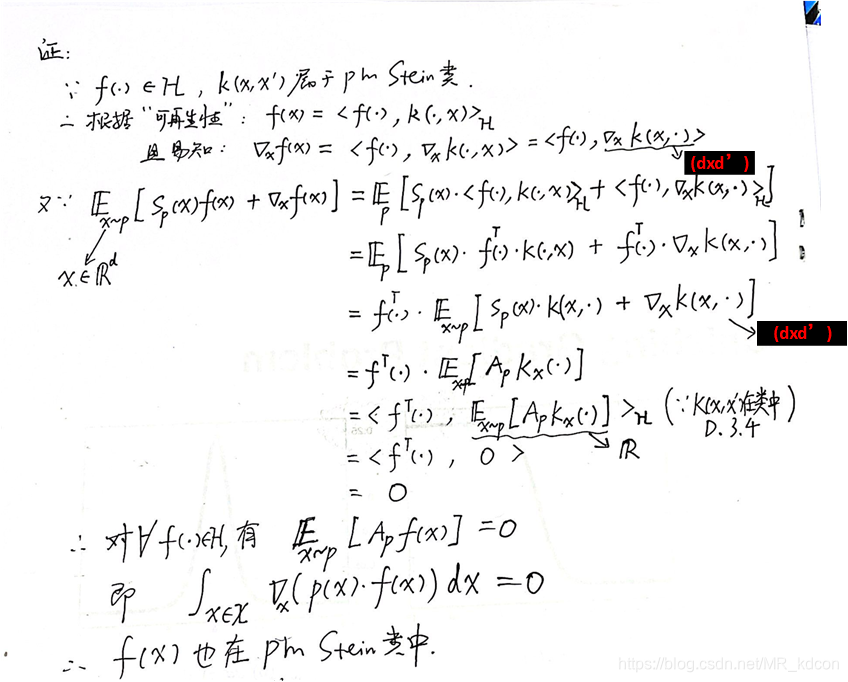 证:
∵ f(·)∈H, k(x,x')属于p的Stein类.
∴ 根据"可再生性": f(x) = <f(·), k(·,x)>_H
且易知: ∇ₓf(x) = <f(·), ∇ₓk(·,x)> = <f(·), ∇ₓk(x,·)>
(dxd')
又∵ 𝔼_{x~p}[Sp(x)f(x) + ∇ₓf(x)] = 𝔼_p[Sp(x)·<f(·), k(·,x)>_H + <f(·), ∇ₓk(x,·)>_H]
x∈ℝ^d
= 𝔼_p[Sp(x)·f^T(·)·k(·,x) + f^T(·)·∇ₓk(x,·)]
= f^T(·)·𝔼_{x~p}[Sp(x)·k(x,·) + ∇ₓk(x,·)]
(dxd')
= f^T(·)·𝔼_{x~p}[Ap kₓ(·)]
= <f^T(·), 𝔼_{x~p}[Ap kₓ(·)]>_H (∵k(x,x')在类中)
D.3.4
ℝ
= <f^T(·), 0>
= 0
∴ 对∀f(·)∈H, 有 𝔼_{x~p}[Ap f(x)] = 0
即 ∫_{x∈X} ∇ₓ(p(x)·f(x))dx = 0
∴ f(x)也在p的Stein类中.
https://blog.csdn.net/MR_kdcon